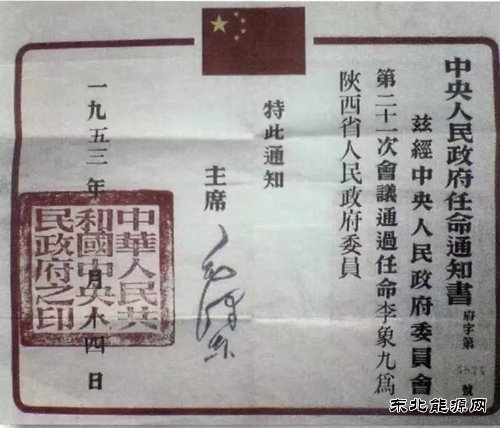 中央人民政府任命通知書
府字第 號
茲經中央人民政府委員會
第二十一次會議通過任命李象九爲
陝西省人民政府委員
特此通知
主席 毛澤東
一九五三年 月十四日
中華人民共
和國中央人
民政府之印
东北能源网